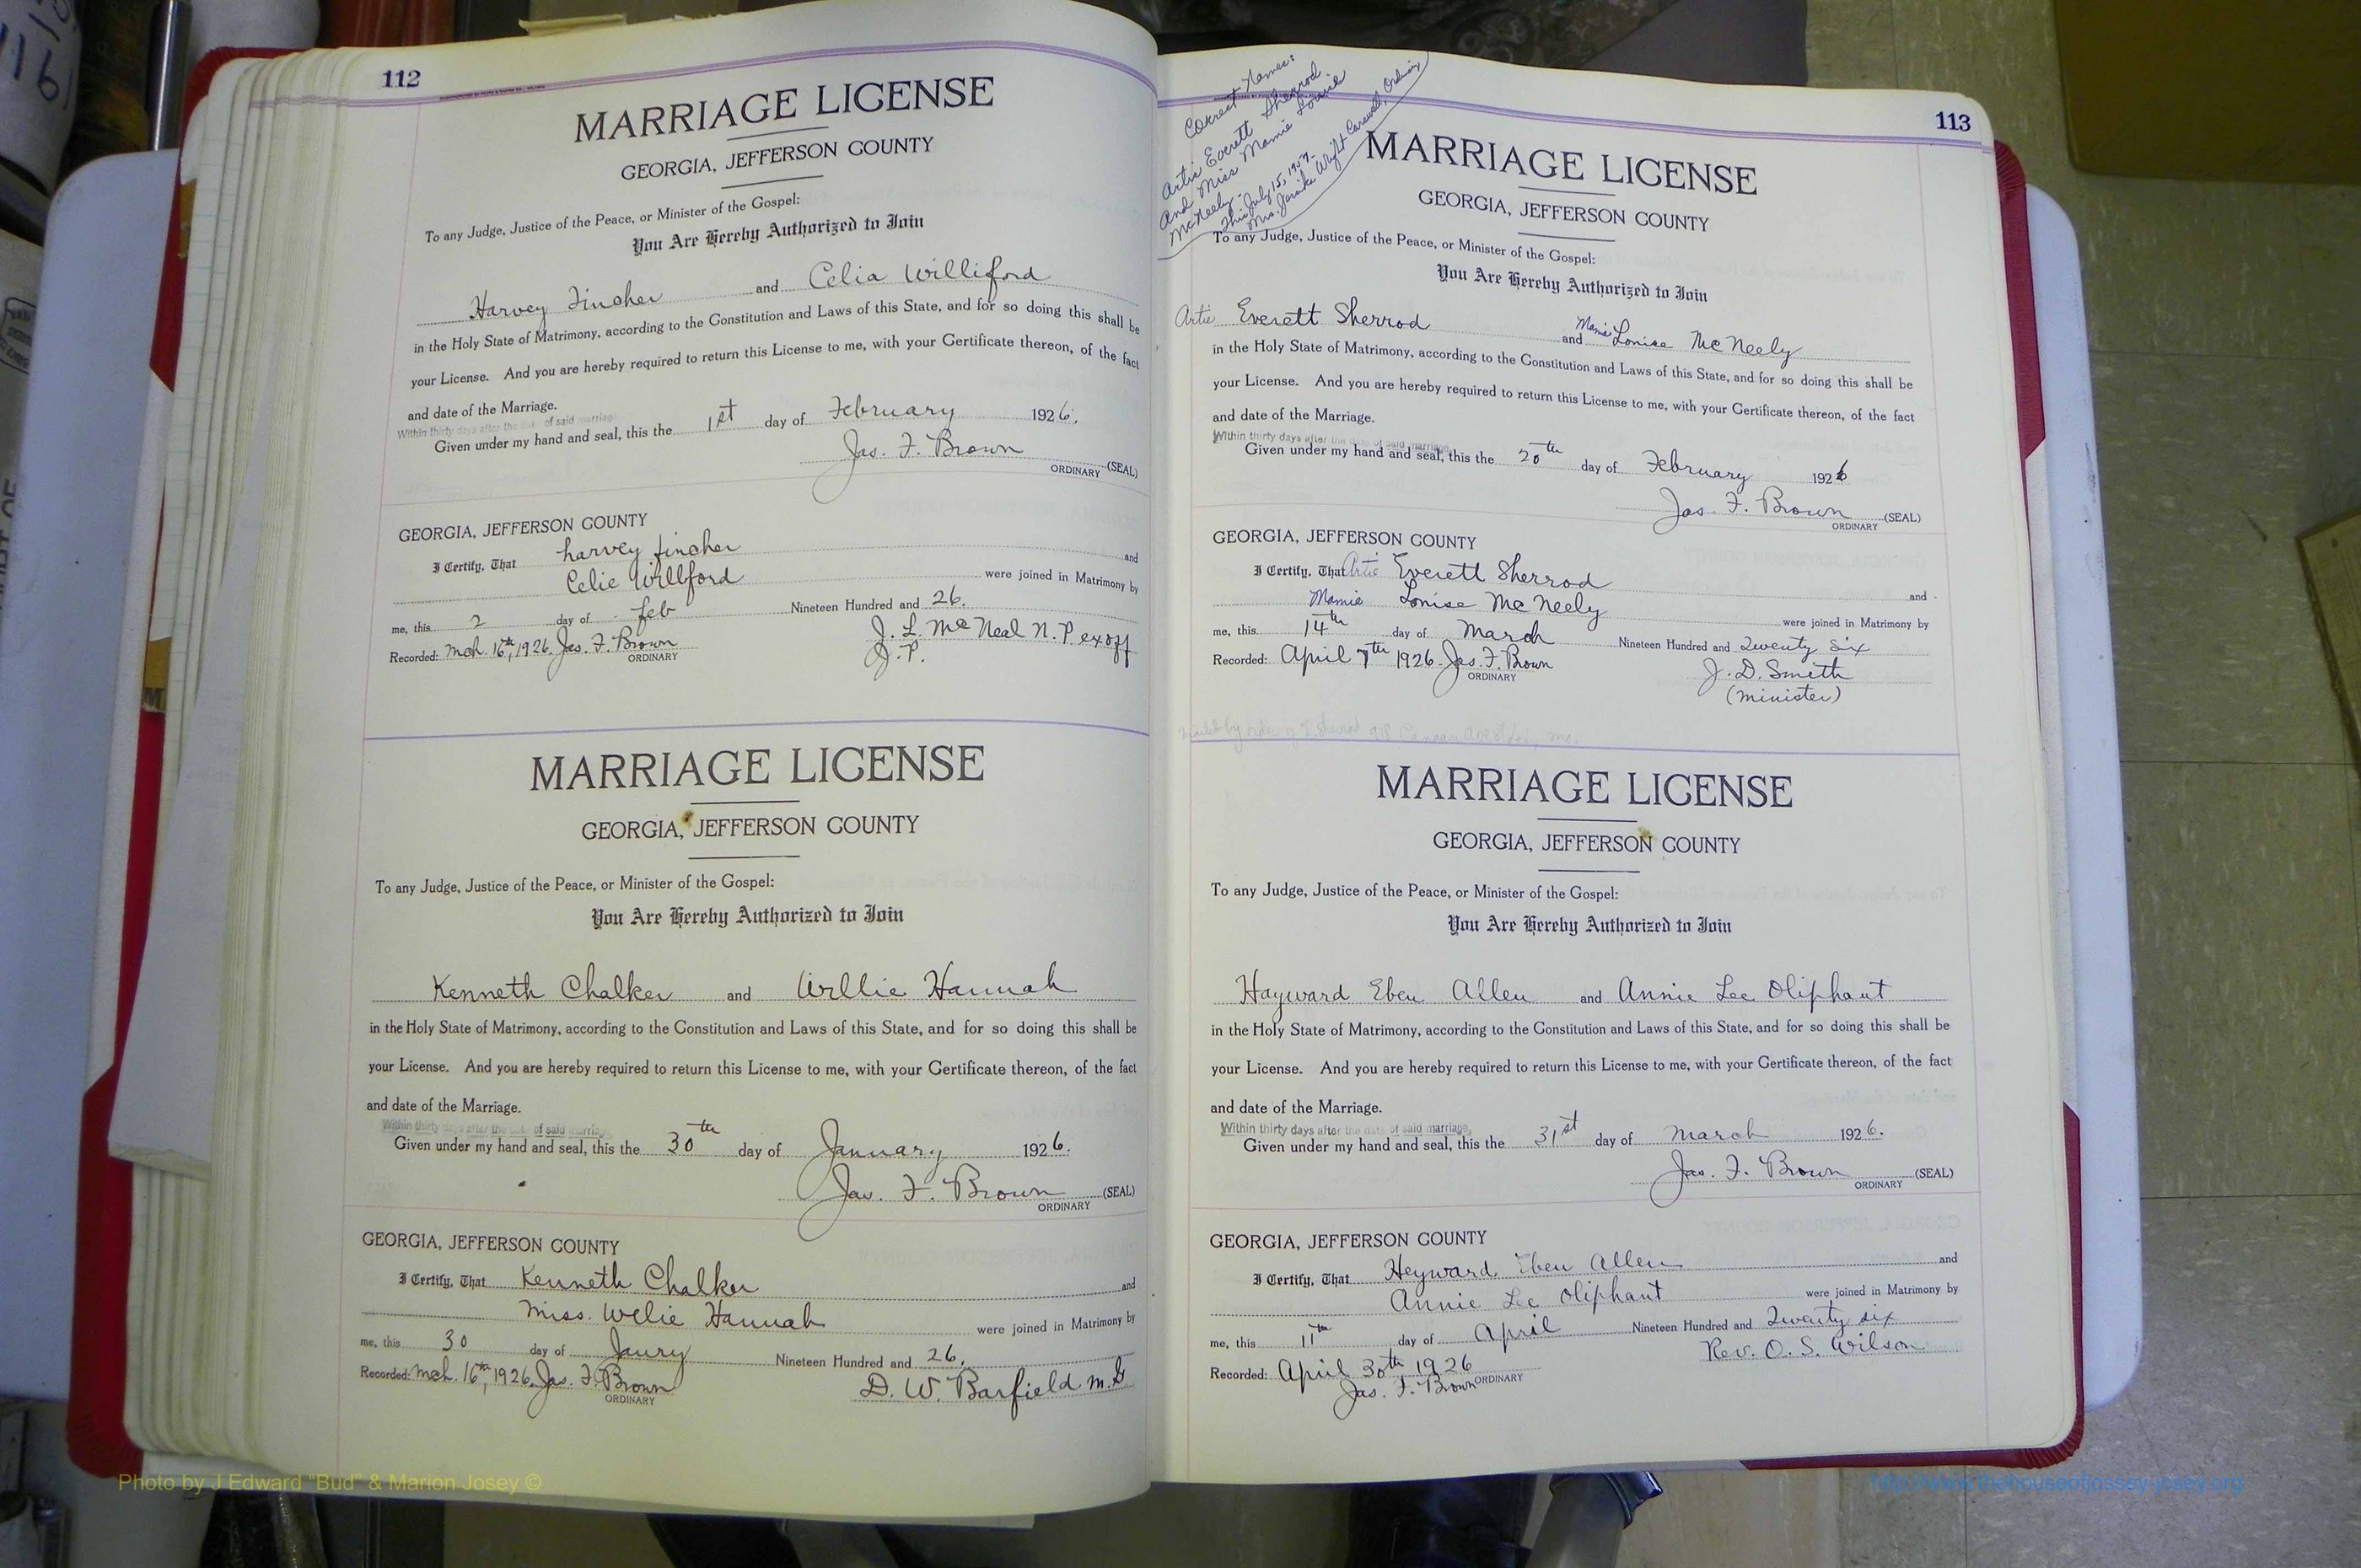 112
MARRIAGE LICENSE
GEORGIA, JEFFERSON COUNTY
To any Judge, Justice of the Peace, or Minister of the Gospel:
You Are Hereby Authorized to Join
Harvey Fincher and Celia Williford
in the Holy State of Matrimony, according to the Constitution and Laws of this State, and for so doing this shall be
your License. And you are hereby required to return this License to me, with your Certificate thereon, of the fact
and date of the Marriage.
Within thirty days after the date of said marriage
Given under my hand and seal, this the 1st day of February 1926.
Jas. F. Brown (SEAL)
ORDINARY
GEORGIA, JEFFERSON COUNTY
I Certify, That harvey fincher and
Celie Willford were joined in Matrimony by
me, this 2 day of feb Nineteen Hundred and 26.
Recorded: Mch. 16th, 1926. Jas. F. Brown J. L. McNeal N. P. ex off
ORDINARY J. P.
MARRIAGE LICENSE
GEORGIA, JEFFERSON COUNTY
To any Judge, Justice of the Peace, or Minister of the Gospel:
You Are Hereby Authorized to Join
Kenneth Chalker and Willie Hannah
in the Holy State of Matrimony, according to the Constitution and Laws of this State, and for so doing this shall be
your License. And you are hereby required to return this License to me, with your Certificate thereon, of the fact
and date of the Marriage.
Within thirty days after the date of said marriage
Given under my hand and seal, this the 30th day of January 1926.
Jas. F. Brown (SEAL)
ORDINARY
GEORGIA, JEFFERSON COUNTY
I Certify, That Kenneth Chalker and
Miss. Welie Hannah were joined in Matrimony by
me, this 30 day of Jaury Nineteen Hundred and 26.
Recorded: Mch. 16th, 1926. Jas. F. Brown D. W. Barfield M. G
ORDINARY
113
Correct Names:
Artie Everett Sherrod
And Miss Mamie Louise
McNeely-
This July 15, 1957-
Mrs. Wright Ordinary
MARRIAGE LICENSE
GEORGIA, JEFFERSON COUNTY
To any Judge, Justice of the Peace, or Minister of the Gospel:
You Are Hereby Authorized to Join
Artie Everett Sherrod and Mamie Louise McNeely
in the Holy State of Matrimony, according to the Constitution and Laws of this State, and for so doing this shall be
your License. And you are hereby required to return this License to me, with your Certificate thereon, of the fact
and date of the Marriage.
Within thirty days after the date of said marriage
Given under my hand and seal, this the 20th day of February 1926
Jas. F. Brown (SEAL)
ORDINARY
GEORGIA, JEFFERSON COUNTY
I Certify, That Artie Everett Sherrod and
Mamie Louise McNeely were joined in Matrimony by
me, this 14th day of March Nineteen Hundred and Twenty Six
Recorded: April 7th 1926. Jas. F. Brown J. D. Smith
ORDINARY (minister)
MARRIAGE LICENSE
GEORGIA, JEFFERSON COUNTY
To any Judge, Justice of the Peace, or Minister of the Gospel:
You Are Hereby Authorized to Join
Hayward Eben Allen and Annie Lee Oliphant
in the Holy State of Matrimony, according to the Constitution and Laws of this State, and for so doing this shall be
your License. And you are hereby required to return this License to me, with your Certificate thereon, of the fact
and date of the Marriage.
Within thirty days after the date of said marriage,
Given under my hand and seal, this the 31st day of March 1926.
Jas. F. Brown (SEAL)
ORDINARY
GEORGIA, JEFFERSON COUNTY
I Certify, That Heyward Eben Allen and
Annie Lee Oliphant were joined in Matrimony by
me, this 11th day of April Nineteen Hundred and Twenty six
Recorded: April 30th, 1926 Rev. O. S. Wilson
Jas. F. Brown ORDINARY
Photo by J Edward "Bud" & Marion Josey ©
http://www.thehouseofjossey-josey.org